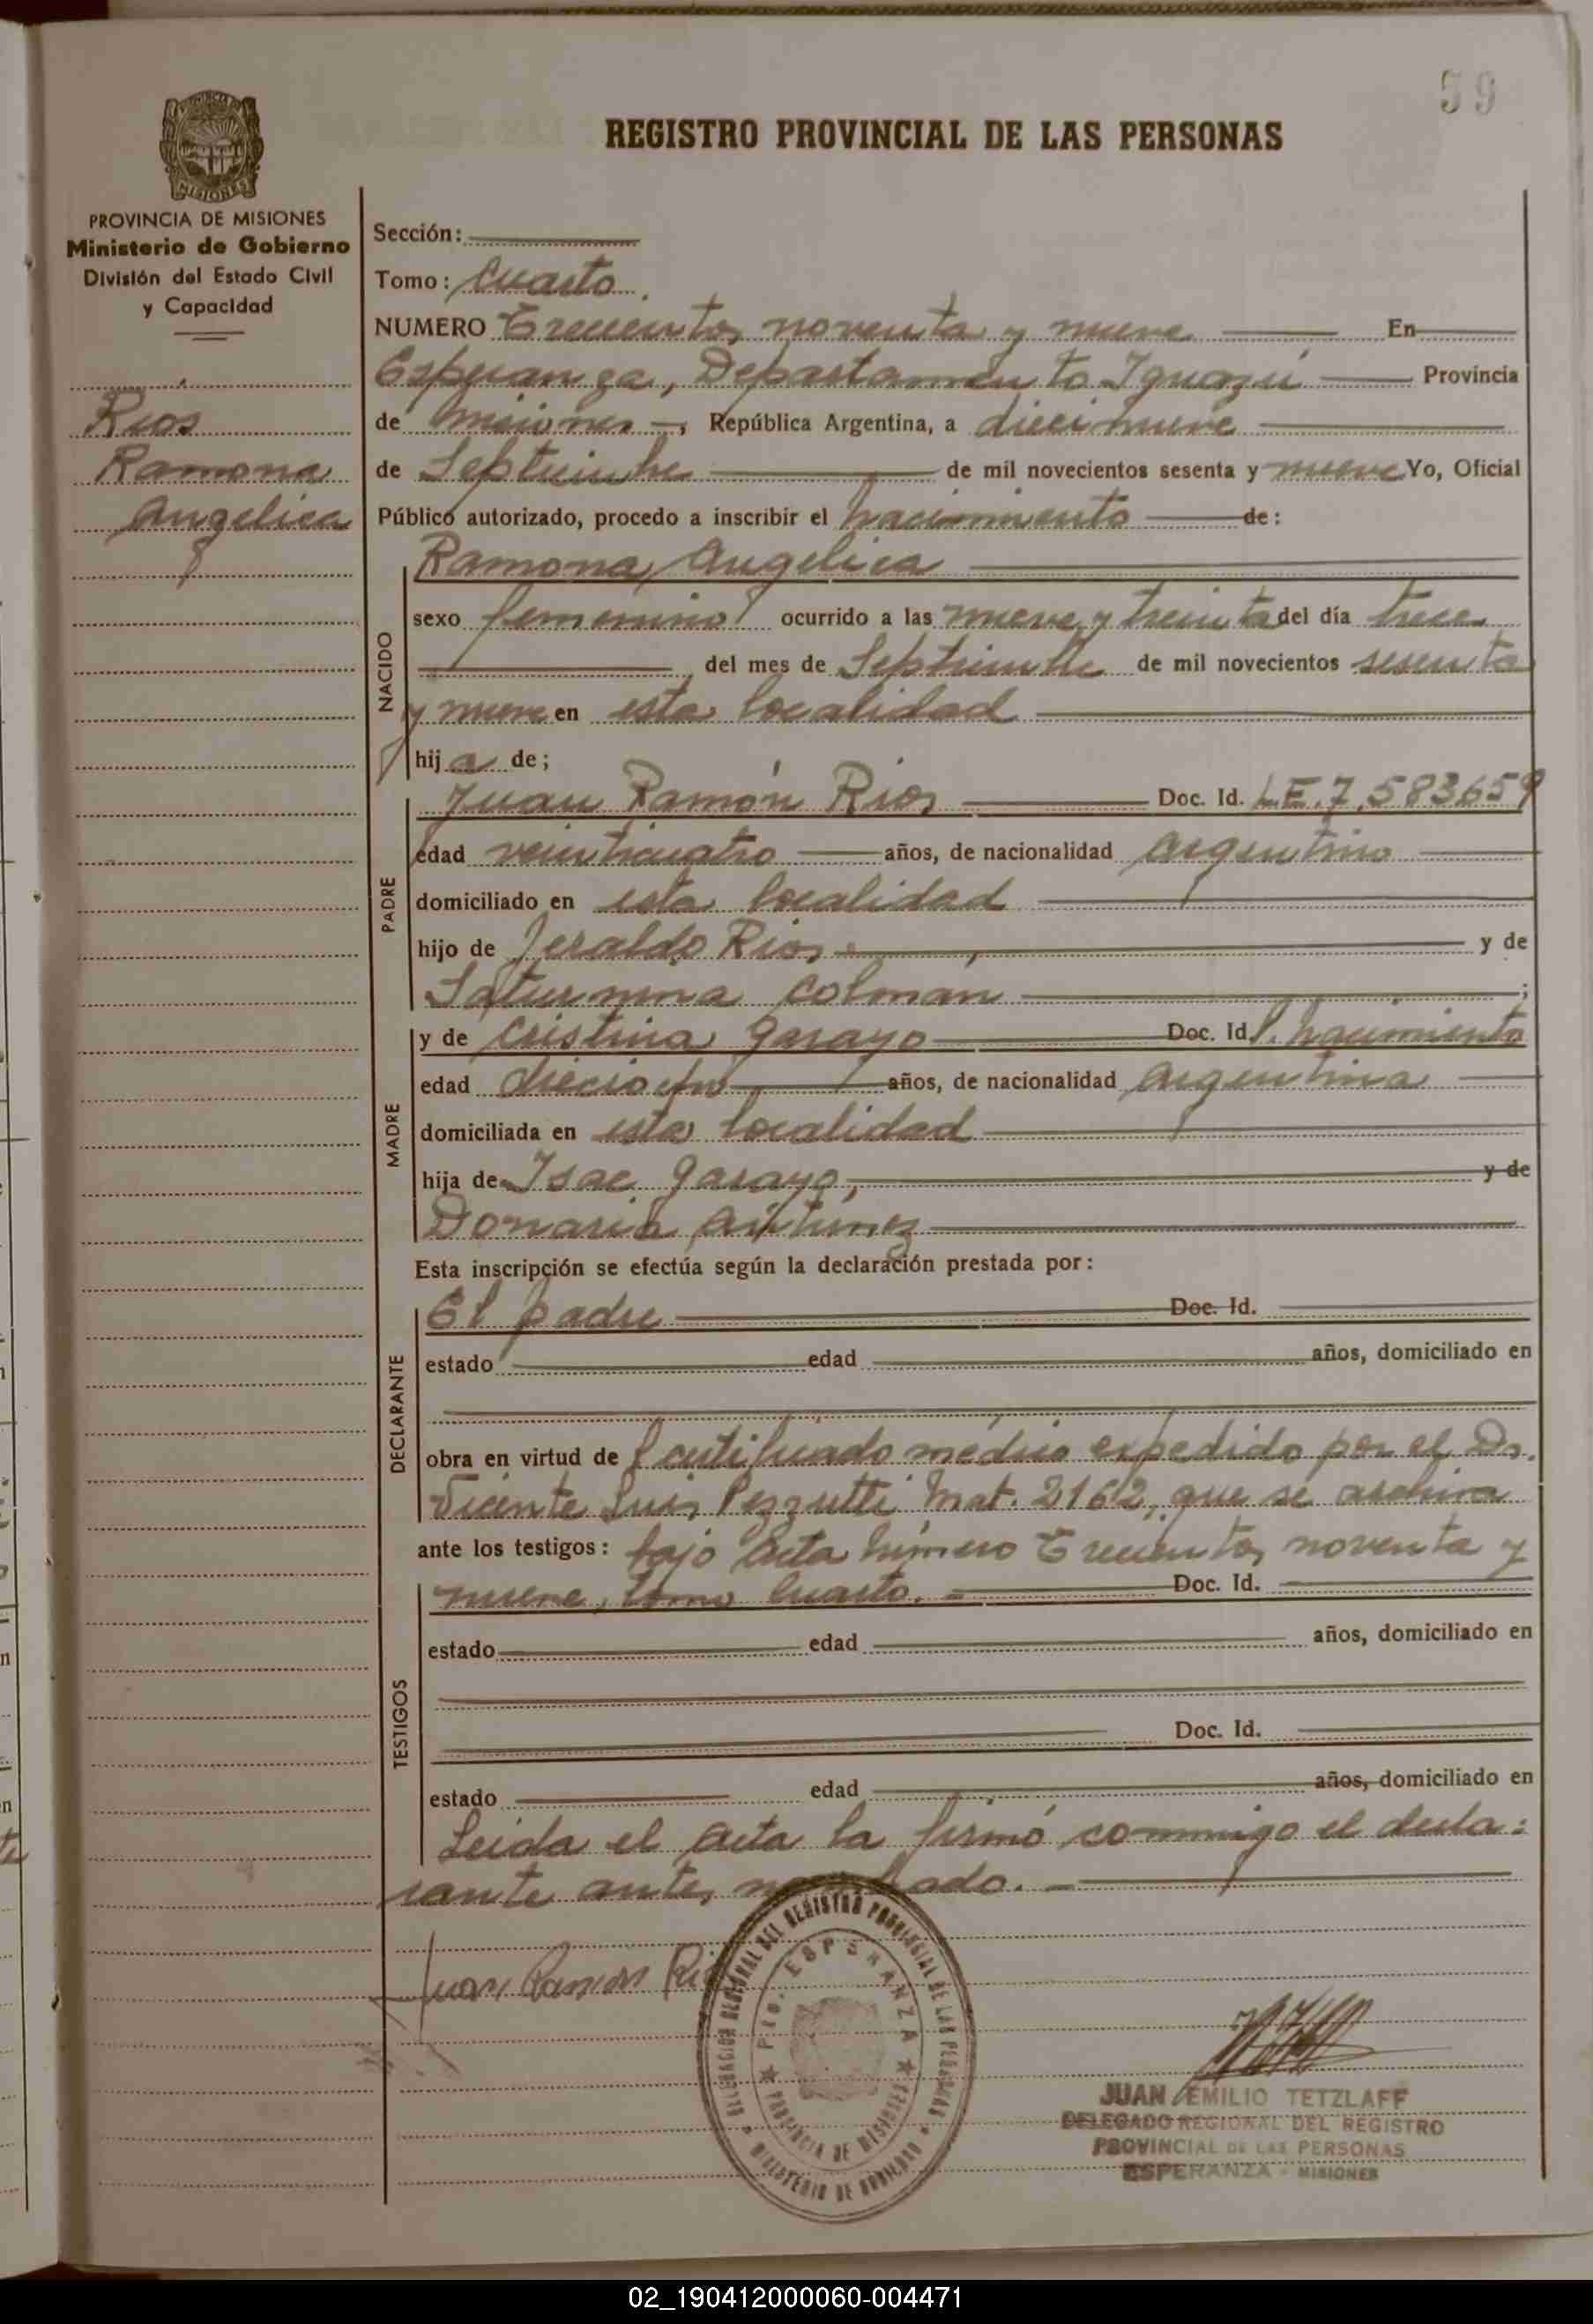 59
REGISTRO PROVINCIAL DE LAS PERSONAS
PROVINCIA DE MISIONES
Ministerio de Gobierno
División del Estado Civil
y Capacidad
Rios
Ramona
Angelica
Sección:
Tomo: Cuarto.
NUMERO Trecientos noventa y nueve En
Esperanza, Departamento Iguazú Provincia
de Misiones, República Argentina, a diecinueve
de Septiembre de mil novecientos sesenta y nueve Yo, Oficial
Público autorizado, procedo a inscribir el nacimiento de:
Ramona Angelica
NACIDO
sexo femenino ocurrido a las nueve y treinta del día trece
del mes de Septiembre de mil novecientos sesenta
y nueve en esta localidad
hija de;
PADRE
Juan Ramón Rios Doc. Id. L.E. 7.583659
edad veinticuatro años, de nacionalidad argentino
domiciliado en esta localidad
hijo de Jeraldo Rios y de
Saturnina Colmán;
MADRE
y de Cristina Garayo Doc. Id. P. nacimiento
edad dieciocho años, de nacionalidad argentina
domiciliada en esta localidad
hija de Isac Garayo, y de
Donaria Antunez
Esta inscripción se efectúa según la declaración prestada por:
DECLARANTE
El padre Doc. Id.
estado edad años, domiciliado en
obra en virtud de certificado médico expedido por el Dr.
Vicente Luis Pezzutti Mat. 2162, que se archiva
ante los testigos: bajo Acta número Trecientos noventa y
nueve, tomo Cuarto.= Doc. Id.
TESTIGOS
estado edad años, domiciliado en
Doc. Id.
estado edad años, domiciliado en
Leida el acta la firmó commigo el decla=
rante antes nombrado.
Juan Ramon Rios
DELEGACION REGIONAL DEL REGISTRO PROVINCIAL DE LAS PERSONAS
PTO. ESPERANZA
PROVINCIA DE MISIONES
MINISTERIO DE GOBIERNO
JUAN EMILIO TETZLAFF
DELEGADO REGIONAL DEL REGISTRO
PROVINCIAL DE LAS PERSONAS
ESPERANZA - MISIONES
02_190412000060-004471